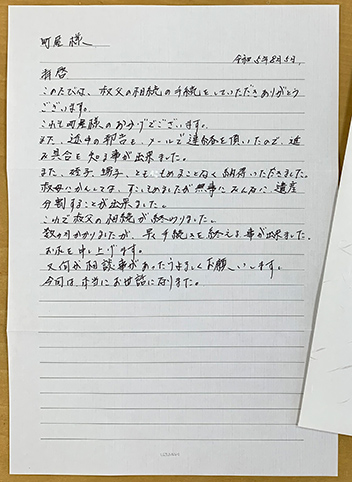 町屋 様
令和5年8月5日
拝啓
このたびは、叔父の相続の手続をしていただきありがとう
ございます。
これも町屋様のおかげでございます。
また、途中の報告も、メールで連絡を頂いたので、進
み具合を知る事が出来ました。
また、姪子、甥子、とも、もめることなく納得いただきました。
叔母にかんしては、すこしもめましたが無事にみんなに、遺産
分割することが出来ました。
これで叔父の相続が終わりました。
数ヶ月かかりましたが、早く手続きを終える事が出来ました。
お礼を申し上げます。
又何か相談事があったらよろしくお願いします。
今回は、本当にお世話になりました。